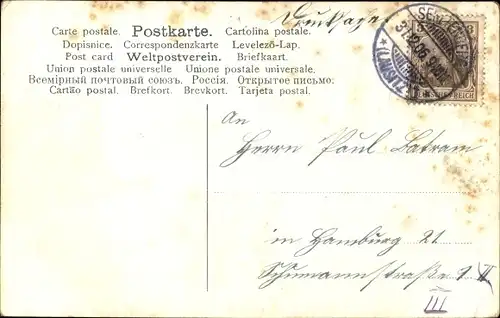 Carte postale. Postkarte. Cartolina postale.
Dopisnice. Correspondenzkarte Levelező-Lap.
Post card Weltpostverein. Briefkaart.
Union postale universelle Unione postale universale.
Всемірный почтовый союзъ. Россія. Открытое письмо.
Cartão postal. Brefkort. Brevkort. Tarjeta postal.
Drucksache
An
Herrn Paul Batram
in Hamburg 21
Schumannstraße
III